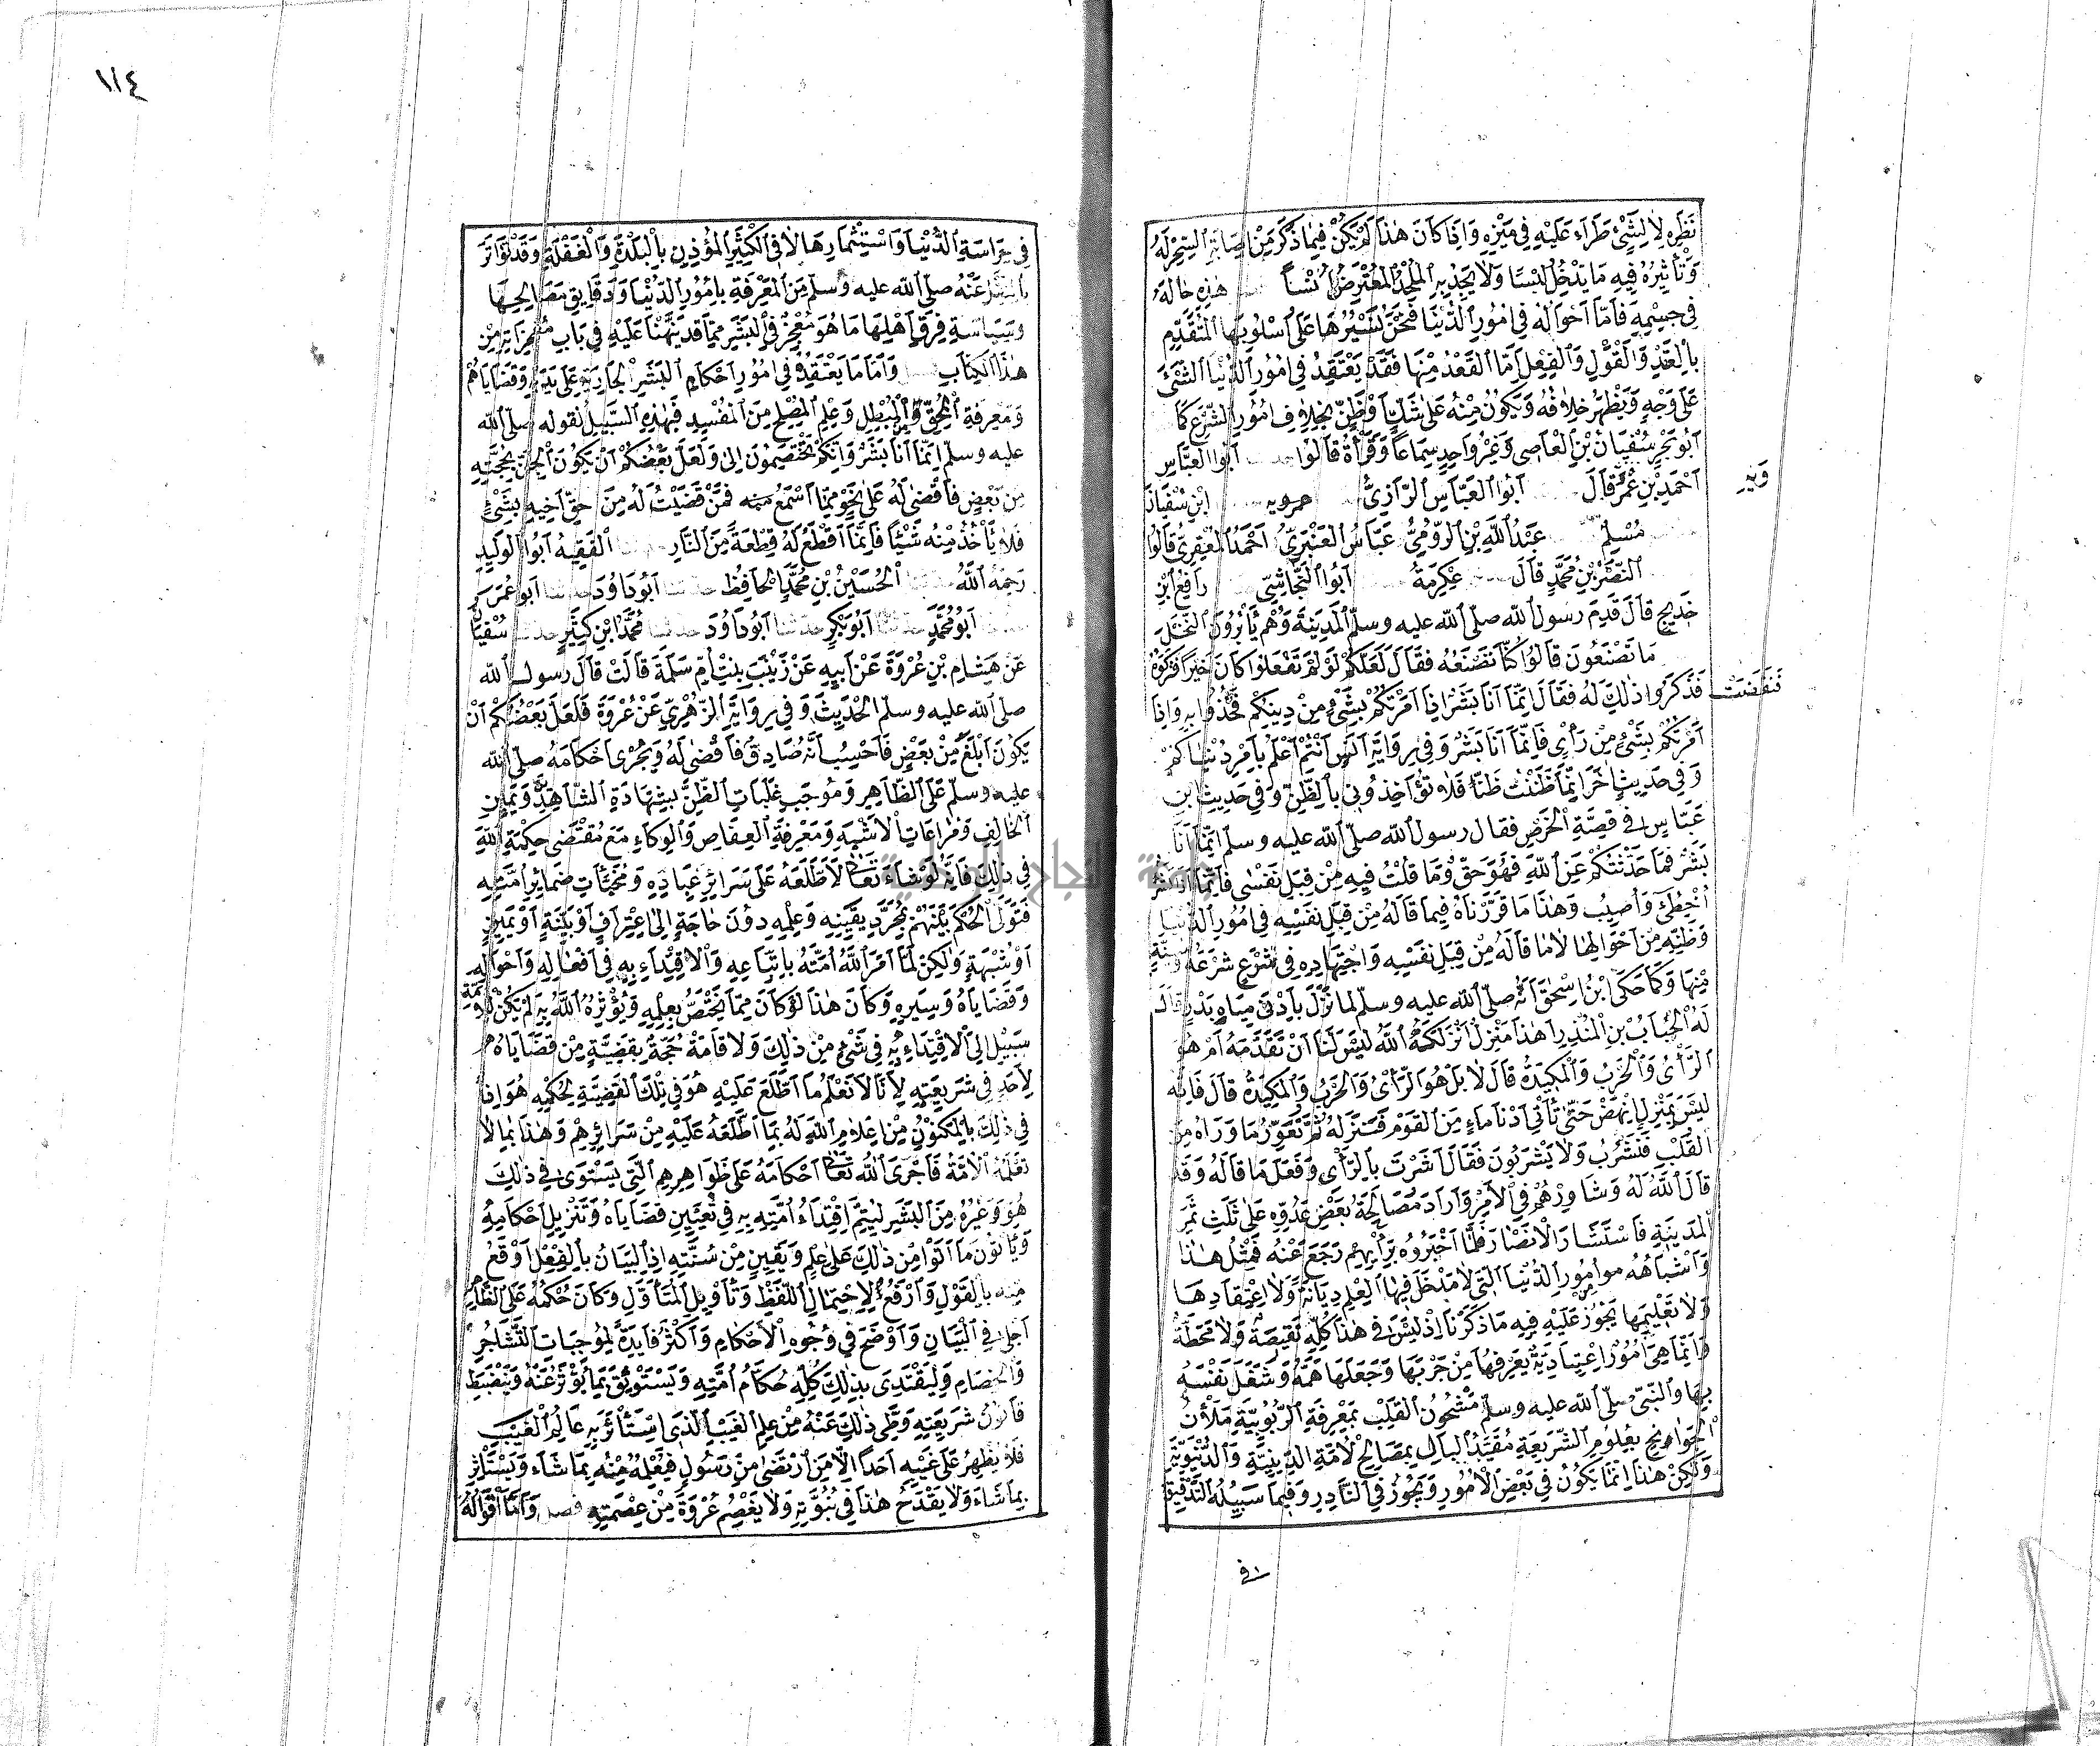 نَظَرِهِ لَا لِشَيْءٍ طَرَاءَ عَلَيْهِ فِي مَيْزِهِ وَإِذَا كَانَ هٰذَا لَمْ يَكُنْ فِيمَا ذُكِرَ مِنْ إِصَابَةِ السِّحْرِ لَهُ
وَتَأْثِيرُهُ فِيهِ مَا يُدْخِلُ لَبْسًا وَلَا يَجِدُ بِهِ الْمُلْحِدُ الْمُعْتَرِضُ أُنْسًا هٰذِهِ حَالُهُ
فِي جِسْمِهِ فَأَمَّا أَحْوَالُهُ فِي أُمُورِ الدُّنْيَا فَنَحْنُ نَسْبُرُهَا عَلَى أُسْلُوبِهَا الْمُتَقَدِّمِ
بِالْعَقْدِ وَالْقَوْلِ وَالْفِعْلِ أَمَّا الْعَقْدُ مِنْهَا فَقَدْ يَعْتَقِدُ فِي أُمُورِ الدُّنْيَا الشَّيْءَ
عَلَى وَجْهٍ وَيَظْهَرُ خِلَافُهُ وَيَكُونُ مِنْهُ عَلَى شَكٍّ أَوْ ظَنٍّ بِخِلَافِ أُمُورِ الشَّرْعِ كَمَا
أَبُو بَحْرٍ سُفْيَانُ بْنُ الْعَاصِي وَغَيْرُ وَاحِدٍ سَمَاعًا وَقَرْأَةً قَالُوا أَبُوا الْعَبَّاسِ
أَحْمَدُ بْنِ عُمَرَ قَالَ أَبُوا الْعَبَّاسِ الرَّازِيُّ عمرويه ابْنُ سُفْيَانَ
مُسْلِمٌ عَبْدُ اللَّهِ بْنِ الرُّومِيُّ عَبَّاسُ الْعَنْبَرِيُّ أَحْمَدُ الْمَعْقِرِيُّ قَالُوا
النَّضْرُ بْنِ مُحَمَّدٍ قَالَ عِكْرِمَةُ أَبُوا النَّجَاشِيّ رَافِعُ ابْنِ
خَدِيجٍ قَالَ قَدِمَ رسول الله صلى الله عليه وسلم الْمَدِينَةَ وَهُمْ يَأْبُرُونَ النَّخْلَ
مَا تَصْنَعُونَ قَالُوا كُنَّا نَصْنَعُهُ فَقَالَ لَعَلَّكُمْ لَوْ لَمْ تَفْعَلُوا كَانَ خَيْرًا فَتَرَكُوهُ
فَنَفَضَتْ فَذَكَرُوا ذٰلِكَ لَهُ فَقَالَ إِنَّمَا أَنَا بَشَرٌ إِذَا أَمَرْتُكُمْ بِشَيْءٍ مِنْ دِينِكُمْ فَخُذُوا بِهِ وَإِذَا
أَمَرْتُكُمْ بِشَيْءٍ مِنْ رَأْيٍ فَإِنَّمَا أَنَا بَشَرٌ وَفِي رِوَايَةِ أَنَسٍ أَنْتُمْ أَعْلَمُ بِأَمْرِ دُنْيَاكُمْ
وَفِي حَدِيثٍ آخَرَ إِنَّمَا ظَنَنْتُ ظَنًّا فَلَا تُؤَاخِذُونِي بِالظَّنِّ وَفِي حَدِيثِ ابْنِ
عَبَّاسٍ فِي قِصَّةِ الْخَرْصِ فقال رسول الله صلى الله عليه وسلم إِنَّمَا أَنَا
بَشَرٌ فَمَا حَدَّثْتُكُمْ عَنِ اللَّهِ فَهُوَ حَقٌّ وَمَا قُلْتُ فِيهِ مِنْ قِبَلِ نَفْسِي فَإِنَّمَا أَنَا بَشَرٌ
أُخْطِئُ وَأُصِيبُ وَهٰذَا مَا قَرَّرْنَاهُ فِيمَا قَالَهُ مِنْ قِبَلِ نَفْسِهِ فِي أُمُورِ الدُّنْيَا
وَظَنِّهِ مِنْ أَحْوَالِهَا لَا مَا قَالَهُ مِنْ قِبَلِ نَفْسِهِ وَاجْتِهَادِهِ فِي شَرْعٍ شَرَعَهُ وَسُنَّةٍ
مِنْهَا وَكَمَا حَكَى ابْنُ إِسْحَقَ أَنَّهُ صلى الله عليه وسلم لَمَّا نَزَلَ بِأَدْنَى مِيَاهِ بَدْرٍ قَالَ
لَهُ الْحُبَابُ بْنِ الْمُنْذِرِ أَهٰذَا مَنْزِلٌ أَنْزَلَكَهُ اللَّهُ لَيْسَ لَنَا أَنْ نَتَقَدَّمَهُ أَمْ هُوَ
الرَّأْيُ وَالْحَرْبُ وَالْمَكِيدَةُ قَالَ لَا بَلْ هُوَ الرَّأْيُ وَالْحَرْبُ وَالْمَكِيدَةُ قَالَ فَإِنَّهُ
لَيْسَ بِمَنْزِلٍ انْهَضْ حَتَّى نَأْتِيَ أَدْنَا مَاءٍ مِنَ الْقَوْمِ فَنَنْزِلَهُ ثُمَّ نُعَوِّرُ مَا وَرَاءَهُ مِنَ
الْقُلُبِ فَنَشْرَبُ وَلَا يَشْرَبُونَ فَقَالَ أَشَرْتَ بِالرَّأْيِ وَفَعَلَ مَا قَالَهُ وَقَدْ
قَالَ اللَّهُ لَهُ وَشَاوِرْهُمْ فِي الْأَمْرِ وَأَرَادَ مُصَالَحَةَ بَعْضِ عَدُوِّهِ عَلَى ثُلُثِ ثَمَرِ
الْمَدِينَةِ فَاسْتَشَارَ الْأَنْصَارَ فَلَمَّا أَخْبَرُوهُ بِرَأْيِهِمْ رَجَعَ عَنْهُ فَمِثْلُ هٰذَا
وَأَشْبَاهُهُ من أُمُورِ الدُّنْيَا الَّتِي لَا مَدْخَلَ فِيهَا الْعِلْمِ دِيَانَةٍ وَلَا اعْتِقَادِهَا
وَلَا تَعْلِيمِهَا يَجُوزُ عَلَيْهِ فِيهِ مَا ذَكَرْنَا إِذْ لَيْسَ فِي هٰذَا كُلِّهِ نَقِيصَةٌ وَلَا مَحَطَّةٌ
وَإِنَّمَا هِيَ أُمُورٌ اعْتِيَادِيَّةٌ يَعْرِفُهَا مَنْ جَرَّبَهَا وَجَعَلَهَا هَمَّهُ وَشَغَلَ نَفْسَهُ
بِهَا وَالنَّبِيُّ صلّى الله عليه وسلم مَشْحُونُ الْقَلْبِ بِمَعْرِفَةِ الرُّبُوبِيَّةِ مَلْآنُ
الْجَوَانِحِ بِعُلُومِ الشَّرِيعَةِ مُقَيَّدُ الْبَالِ بِمَصَالِحِ الْأُمَّةِ الدِّينِيَّةِ وَالدُّنْيَوِيَّةِ
وَلٰكِنْ هٰذَا إِنَّمَا يَكُونُ فِي بَعْضِ الْأُمُورِ وَيَجُوزُ فِي النَّادِرِ وَفِيمَا سَبِيلُهُ التَّدْقِيقُ
في
١١٤
فِي حِرَاسَةِ الدُّنْيَا وَاسْتِثْمَارِهَا لَا فِي الْكَثِيرِ الْمُؤْذِنِ بِالْبَلَهِ وَالْغَفْلَةِ وَقَدْ تَوَاتَرَ
بِالنَّقْلِ عَنْهُ صلى الله عليه وسلم مِنَ الْمَعْرِفَةِ بِأُمُورِ الدُّنْيَا وَدَقَايِقِ مَصَالِحِهَا
وَسِيَاسَةِ فِرَقِ أَهْلِهَا مَا هُوَ مُعْجِزٌ فِي الْبَشَرِ مِمَّا قَدْ نَبَّهْنَا عَلَيْهِ فِي بَابِ مُعْجِزَاتِهِ مِنْ
هٰذَا الْكِتَابِ وَأَمَّا مَا يَعْتَقِدُهُ فِي أُمُورِ أَحْكَامِ الْبَشَرِ الْجَارِيَةِ عَلَى يَدَيْهِ وَقَضَايَاهُمْ
وَمَعْرِفَةِ الْمُحِقِّ مِنَ الْمُبْطِلِ وَعِلْمِ الْمُصْلِحِ مِنَ الْمُفْسِدِ فَبِهٰذِهِ السَّبِيلِ لِقَوْلِهِ صلى الله
عليه وسلم إِنَّمَا أَنَا بَشَرٌ وَإِنَّكُمْ تَخْتَصِمُونَ إِلَيَّ وَلَعَلَّ بَعْضَكُمْ أَنْ يَكُونَ أَلْحَنَ بِحُجَّتِهِ
مِنْ بَعْضٍ فَأَقْضِيَ لَهُ عَلَى نَحْوٍ مِمَّا أَسْمَعُ منه فَمَنْ قَضَيْتُ لَهُ مِنَ حَقِّ أَخِيهِ بِشَيْءٍ
فَلَا يَأْخُذْ مِنْهُ شَيْئًا فَإِنَّمَا أَقْطَعُ لَهُ قِطْعَةً مِنَ النَّارِ الْفَقِيهُ أَبُو الْوَلِيدِ
رَحِمَهُ اللَّهُ الْحُسَيْنُ بْنِ مُحَمَّدٍ الْحَافِظُ أَبُو دَاوُدَ حدثنا أَبُو عُمَرَ
أَبُو مُحَمَّدٍ حدثنا أَبُو بَكْرٍ حدثنا أَبُو دَاوُدَ حدثنا مُحَمَّدُ ابْنِ كَثِيرٍ حدثنا سُفْيَانُ
عَنْ هِشَامِ بْنِ عُرْوَةَ عَنْ أَبِيهِ عَنْ زَيْنَبَ بِنْتِ أُمِّ سَلَمَةَ قَالَتْ قَالَ رسول الله
صلى الله عليه وسلم الْحَدِيثَ وَفِي رِوَايَةِ الزُّهْرِيِّ عَنْ عُرْوَةَ فَلَعَلَّ بَعْضَكُمْ أَنْ
يَكُونَ أَبْلَغَ مِنْ بَعْضٍ فَأَحْسِبُ أَنَّهُ صَادِقٌ فَأَقْضِيَ لَهُ وَيُجْرِي أَحْكَامَهُ صلى الله
عليه وسلم عَلَى الظَّاهِرِ وَمُوجَبِ غَلَبَاتِ الظَّنِّ بِشَهَادَةِ الشَّاهِدِ وَيَمِينِ
الْحَالِفِ وَمُرَاعَاتِ الْأَشْبَهِ وَمَعْرِفَةِ الْعِفَاصِ وَالْوِكَاءِ مَعَ مُقْتَضَى حِكْمَةِ اللَّهِ
فِي ذٰلِكَ فَإِنَّهُ لَوْ شَاءَ تَعَالَى لَأَطْلَعَهُ عَلَى سَرَائِرِ عِبَادِهِ وَمُخَبَّئَاتِ ضَمَائِرِ أُمَّتِهِ
فَتَوَلَّى الْحُكْمَ بَيْنَهُمْ بِمُجَرَّدِ يَقِينِهِ وَعِلْمِهِ دُونَ حَاجَةٍ إِلَى اعْتِرَافٍ أَوْ بَيِّنَةٍ أَوْ يَمِينٍ
أَوْ شُبْهَةٍ وَلٰكِنْ لَمَّا أَمَرَ اللَّهُ أُمَّتَهُ بِاتِّبَاعِهِ وَالْاقْتِدَاءِ بِهِ فِي أَفْعَالِهِ وَأَحْوَالِهِ
وَقَضَايَاهُ وَسِيَرِهِ وَكَانَ هٰذَا لَوْ كَانَ مِمَّا يَخْتَصُّ بِعِلْمِهِ وَيُؤْثِرُهُ اللَّهُ بِهِ لَمْ يَكُنْ لِلْأُمَّةِ
سَبِيلٌ إِلَى الْاقْتِدَاءِ بِهِ فِي شَيْءٍ مِنْ ذٰلِكَ وَلَا قَامَةْ حُجَّةٌ بِقَضِيَّةٍ مِنْ قَضَايَاهُ
لِأَحَدٍ فِي شَرِيعَتِهِ لِأَنَّا لَا نَعْلَمُ مَا أُطْلِعَ عَلَيْهِ هُوَ فِي تِلْكَ الْقَضِيَّةِ لِحُكْمِهِ هُوَ إِذًا
فِي ذٰلِكَ بِالْمَكْنُونِ مِنْ إِعْلَامِ اللَّهِ لَهُ بِمَا أَطْلَعَهُ عَلَيْهِ مِنْ سَرَائِرِهِمْ وَهٰذَا مَا لَا
تَعْلَمُهُ الْأُمَّةُ فَأَجْرَى اللَّهُ تَعَالَى أَحْكَامَهُ عَلَى ظَوَاهِرِهِمِ الَّتِي يَسْتَوِي فِي ذٰلِكَ
هُوَ وَغَيْرُهُ مِنَ الْبَشَرِ لِيَتِمَّ اقْتِدَاءُ أُمَّتِهِ بِهِ فِي تَعْيِينِ قَضَايَاهُ وَتَنْزِيلِ أَحْكَامِهِ
وَيَأْتُونَ مَا أَتَوْا مِنْ ذٰلِكَ عَلَى عِلْمٍ وَيَقِينٍ مِنْ سُنَّتِهِ إِذِ الْبَيَانُ بِالْفِعْلِ أَوْقَعُ
مِنْهُ بِالْقَوْلِ وَأَرْفَعُ لِاحْتِمَالِ اللَّفْظِ وَتَأْوِيلِ الْمُتَأَوِّلِ وَكَانَ حُكْمُهُ عَلَى الظَّاهِرِ
أَجْلَى فِي الْبَيَانِ وَأَوْضَحَ فِي وُجُوهِ الْأَحْكَامِ وَأَكْثَرَ فَايِدَةً لِمُوجِبَاتِ التَّشَاجُرِ
وَالْخِصَامِ وَلِيَقْتَدِيَ بِذٰلِكَ كُلِّهِ حُكَّامُ أُمَّتِهِ وَيُسْتَوْثَقَ بِمَا يُؤْثَرُ عَنْهُ وَيَنْضَبِطَ
قَانُونُ شَرِيعَتِهِ وَطَيِّ ذٰلِكَ عَنْهُ مِنْ عِلْمِ الْغَيْبِ الَّذِي اسْتَأْثَرَ بِهِ عَالِمُ الْغَيْبِ
فَلَا يُظْهِرُ عَلَى غَيْبِهِ أَحَدًا إِلَّا مَنِ ارْتَضَى مِنْ رَسُولٍ فَيُعْلِمُهُ مِنْهُ بِمَا شَاءَ وَيَسْتَأْثِرُ
بِمَا شَاءَ وَلَا يَقْدَحُ هٰذَا فِي نُبُوَّتِهِ وَلَا يَفْصِمُ عُرْوَةً مِنْ عِصْمَتِهِ فصل وَأَمَّا أَقْوَالُهُ